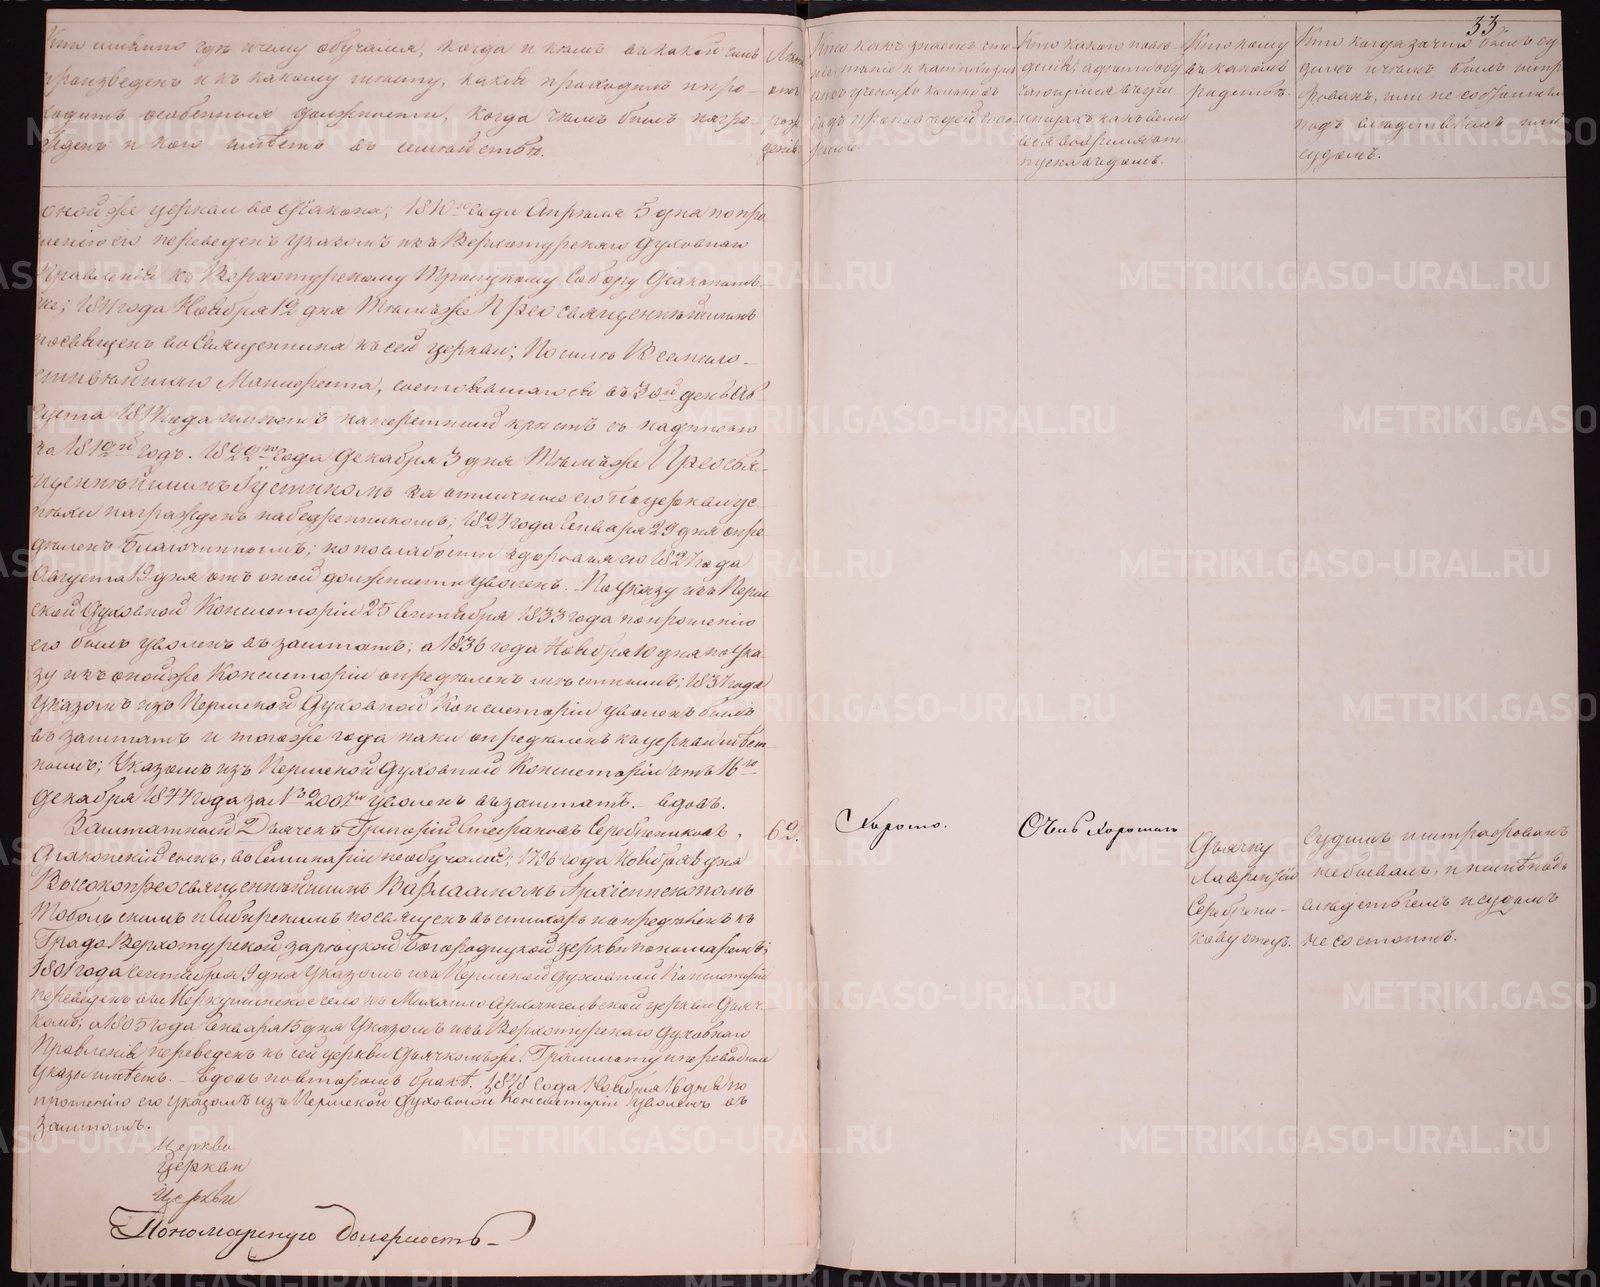 33
Кто именно гдѣ и чему обучался, когда и кѣмъ въ какой чинъ
произведенъ и къ какому чину, какія проходилъ и про-
ходитъ особенныя должности, когда чѣмъ былъ награ-
жденъ и кого имѣетъ въ семействѣ.
Лѣта
отъ
рож
денія
Кто какъ знаетъ
Кто какого пове-
денія,
отпуска въ домъ.
Кто кому
въ какомъ
родствѣ.
Кто когда за что былъ су
димъ и чѣмъ былъ штра
фованъ, или не состоитъ ли
подъ слѣдствіемъ или
судомъ.
оной же церкви во діакона; 1810го года Апрѣля 5 дня по про
шенію его переведенъ указомъ изъ Верхотурскаго Духовнаго
Правленія къ Верхотурскому Троицкому Собору діакономъ
же; 1811 года Ноября 12 дня тѣмъ же Преосвященнѣйшимъ
посвященъ во Священника къ сей церкви; По силѣ Всемило-
стивѣйшаго Манифеста, состоявшагося въ 30й день Ав-
густа 1814 года имѣетъ наперстный крестъ съ надписью
за 1812й годъ. 1822го года Декабря 3 дня тѣмъ же Преосвя-
щеннѣйшимъ Іустиномъ за отличные его по церкви ус-
пѣхи награжденъ набедренникомъ; 1824 года Генваря 29 дня опре-
дѣленъ Благочиннымъ; но по слабости здоровья его 1827 года
Августа 19 дня отъ оной должности уволенъ. По указу изъ Перм
ской Духовной Консисторіи 25 Сентября 1833 года по прошенію
его былъ уволенъ въ заштатъ; а 1836 года Ноября 10 дня по ука-
зу изъ оной же Консисторіи опредѣленъ мѣстнымъ; 1837 года
Указомъ изъ Пермской Духовной Консисторіи уволенъ былъ
въ заштатъ и того же года паки опредѣленъ къ церкви мѣст-
нымъ; Указомъ изъ Пермской Духовной Консисторіи отъ 16го
Декабря 1844 года за № уволенъ въ заштатъ. – вдовъ.
Заштатный Дьячекъ Григорій Стефановъ Серебренниковъ,
діаконскій сынъ, въ Семинаріи не обучался; 1796 года Ноября дня
Высокопреосвященнѣйшимъ Варлаамомъ Архіепископомъ
Тобольскимъ и Сибирскимъ посвященъ въ стихарь и опредѣленъ къ
Града Верхотурской зарѣцкой Богородицкой церкви пономаремъ;
1801 года Сентября 9 дня Указомъ изъ Пермской Духовной Консисторіи
переведенъ въ Меркушинское село къ Михайло Архангельской церкви Дьяч-
комъ; а 1805 года Генваря 15 дня Указомъ изъ Верхотурскаго Духовнаго
Правленія переведенъ къ сей церкви Дьячкомъ же. Граммату и переводные
указы имѣетъ. – вдовъ по второмъ бракѣ. года Ноября 16 дня по
прошенію его указомъ изъ Пермской Духовной Консисторіи уволенъ въ
заштатъ.
Хорошо.
Очень хорошаго
Дьячку
Лаврентію
Серебрени-
кову отецъ.
Судимъ и штрафованъ
не бывалъ, и нынѣ подъ
слѣдствіемъ и судомъ
не состоитъ.
церкви
церкви
церкви
Пономарскую должность –